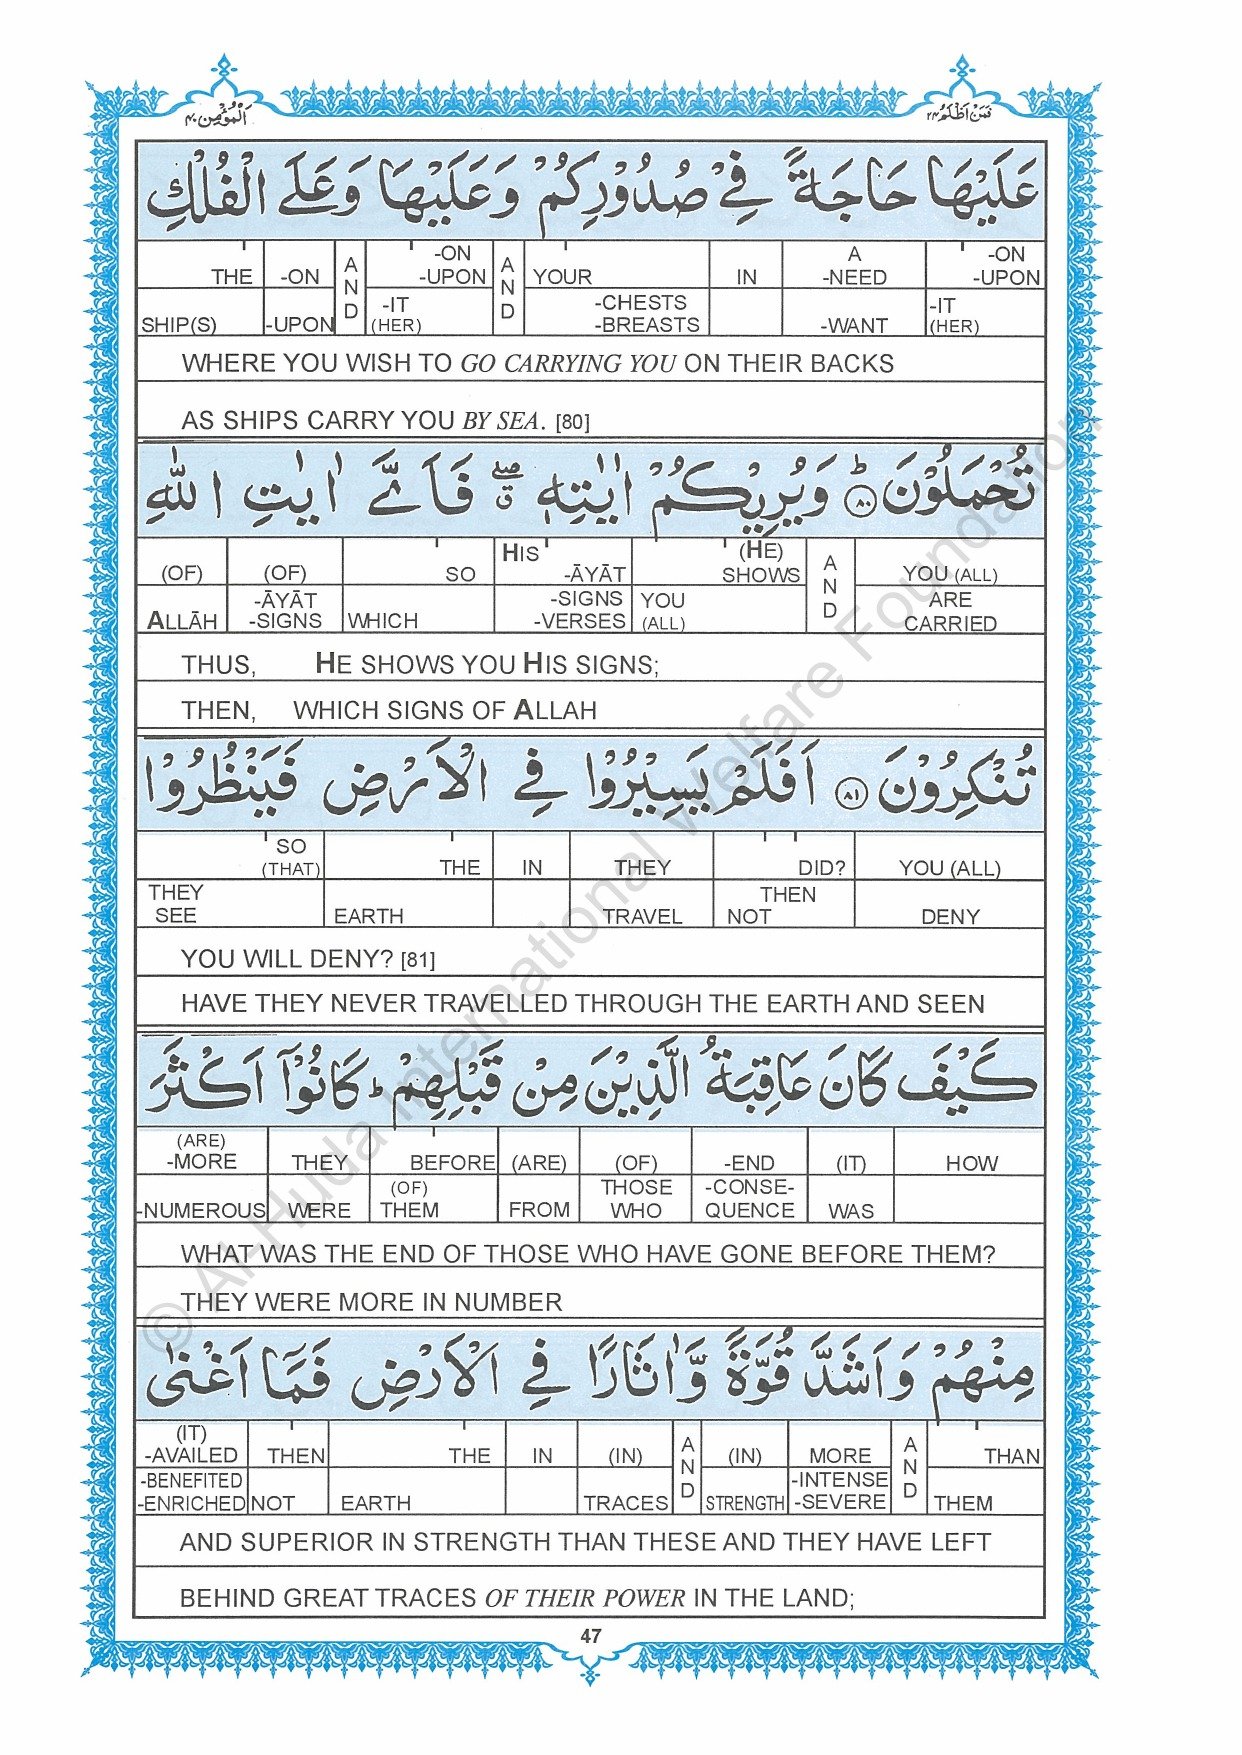 اَلْمُؤْمِن ٤٠
فَمَنْ اَظْلَمُ ٢٤
عَلَيْهَا حَاجَةً فِيْ صُدُوْرِكُمْ وَعَلَيْهَا وَعَلَى الْفُلْكِ
THE -ON AND -ON AND YOUR IN A -ON
-UPON -NEED -UPON
SHIP(S) -UPON -IT -CHESTS -WANT -IT
(HER) -BREASTS (HER)
WHERE YOU WISH TO GO CARRYING YOU ON THEIR BACKS
AS SHIPS CARRY YOU BY SEA. [80]
تُحْمَلُوْنَ ؕ ٨٠ وَيُرِيْكُمْ اٰيٰتِهٖ ۖق فَاَيَّ اٰيٰتِ اللّٰهِ
(OF) (OF) SO HIS -ĀYĀT (HE) SHOWS AND YOU (ALL)
ALLĀH -ĀYĀT -SIGNS WHICH -SIGNS -VERSES YOU (ALL) ARE CARRIED
THUS, HE SHOWS YOU HIS SIGNS;
THEN, WHICH SIGNS OF ALLAH
تُنْكِرُوْنَ ٨١ اَفَلَمْ يَسِيْرُوْا فِي الْاَرْضِ فَيَنْظُرُوْا
SO (THAT) THE IN THEY DID? YOU (ALL)
THEY SEE EARTH TRAVEL THEN NOT DENY
YOU WILL DENY? [81]
HAVE THEY NEVER TRAVELLED THROUGH THE EARTH AND SEEN
كَيْفَ كَانَ عَاقِبَةُ الَّذِيْنَ مِنْ قَبْلِهِمْ ؕ كَانُوْٓا اَكْثَرَ
(ARE) -MORE THEY BEFORE (ARE) (OF) -END (IT) HOW
-NUMEROUS WERE (OF) THEM FROM THOSE WHO -CONSE-QUENCE WAS
WHAT WAS THE END OF THOSE WHO HAVE GONE BEFORE THEM?
THEY WERE MORE IN NUMBER
مِنْهُمْ وَاَشَدَّ قُوَّةً وَّاٰثَارًا فِي الْاَرْضِ فَمَآ اَغْنٰى
(IT) -AVAILED THEN THE IN (IN) AND (IN) MORE AND THAN
-BENEFITED -ENRICHED NOT EARTH TRACES STRENGTH -INTENSE -SEVERE THEM
AND SUPERIOR IN STRENGTH THAN THESE AND THEY HAVE LEFT
BEHIND GREAT TRACES OF THEIR POWER IN THE LAND;
47
© Al-Huda International Welfare Foundation